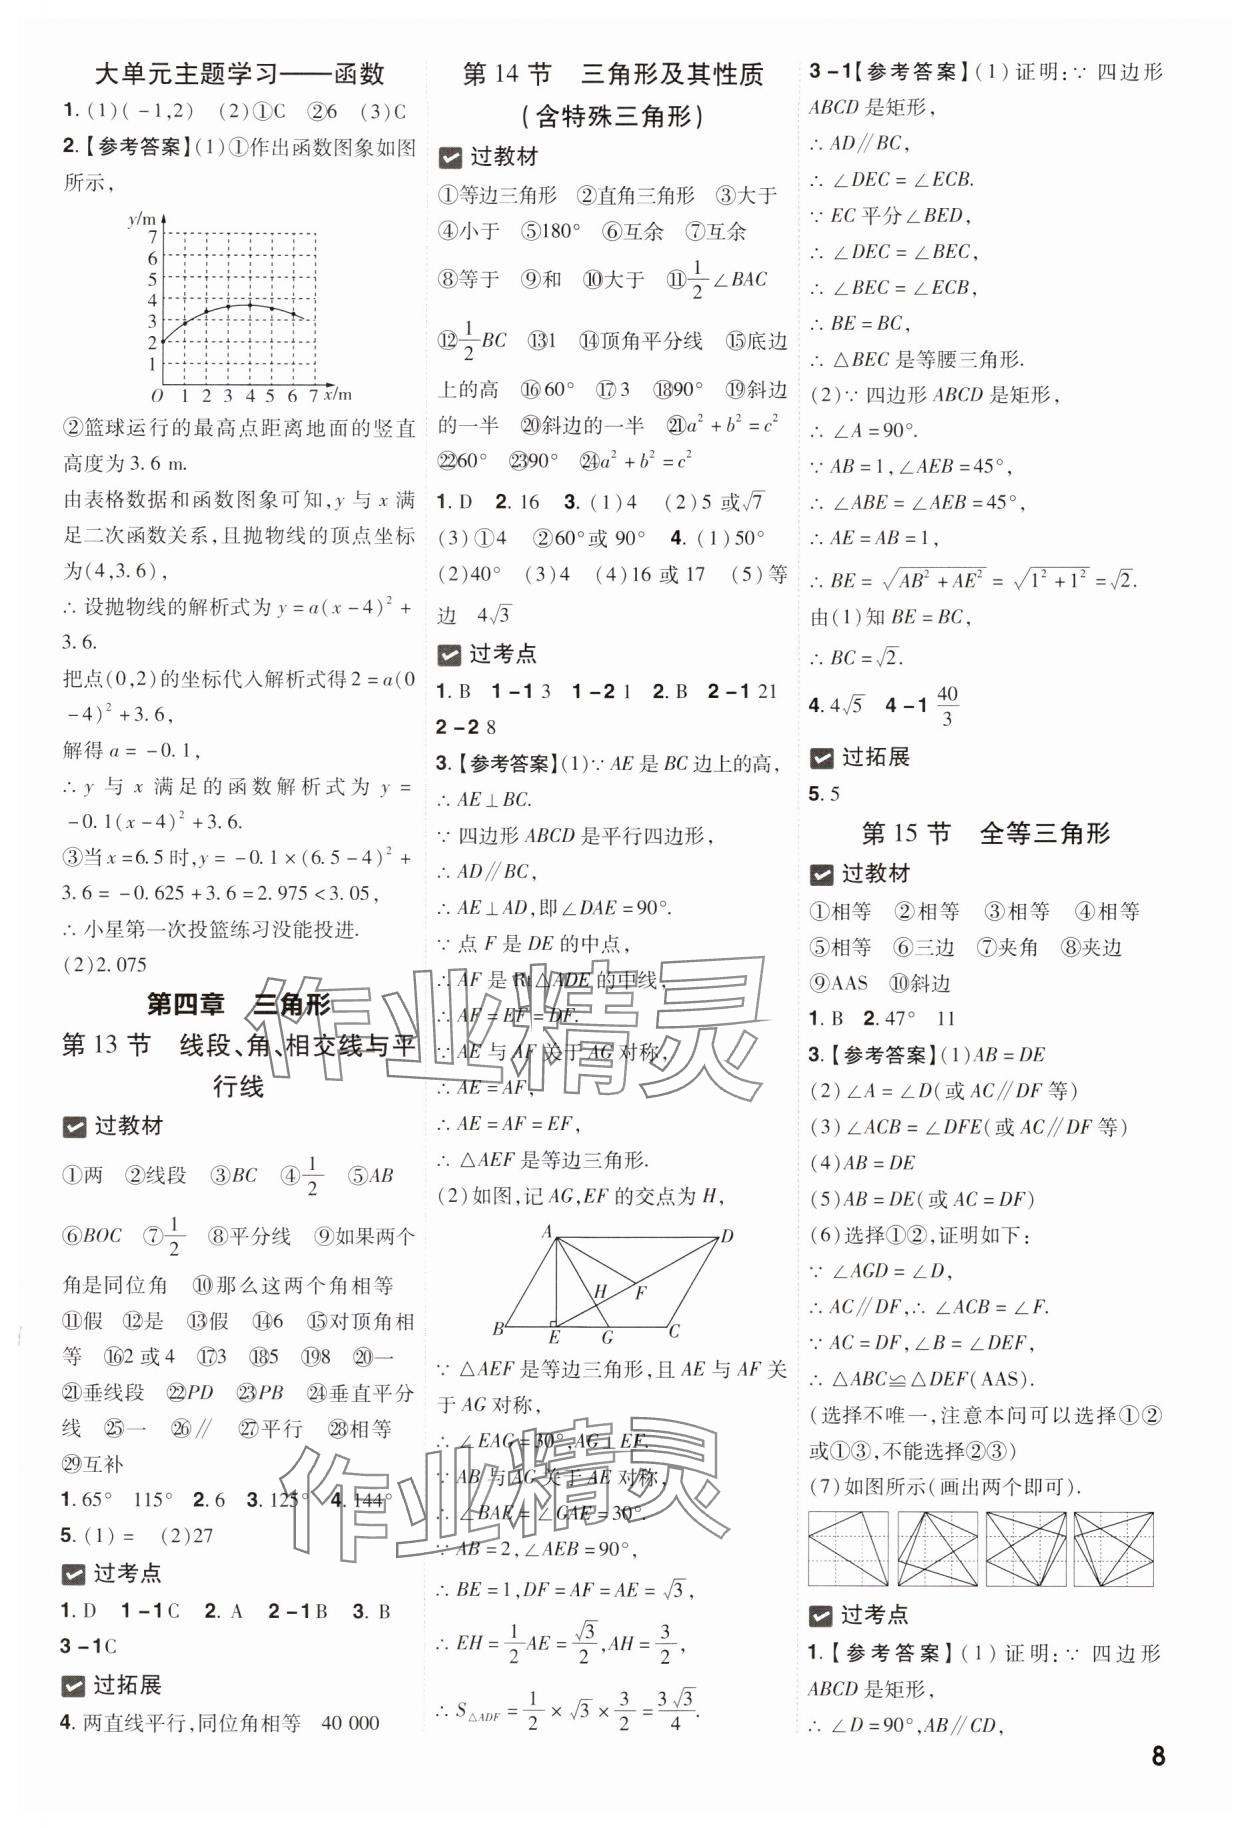 大单元主题学习——函数
1.(1)(-1,2)　(2)①C　②6　(3)C
2.【参考答案】(1)①作出函数图象如图
所示,
y/m
7
6
5
4
3
2
1
O 1 2 3 4 5 6 7 x/m
②篮球运行的最高点距离地面的竖直
高度为3.6 m.
由表格数据和函数图象可知,y 与 x 满
足二次函数关系,且抛物线的顶点坐标
为(4,3.6),
∴ 设抛物线的解析式为 y=a(x-4)²+
3.6.
把点(0,2)的坐标代入解析式得2=a(0
-4)²+3.6,
解得 a=-0.1,
∴ y 与 x 满足的函数解析式为 y=
-0.1(x-4)²+3.6.
③当x=6.5时,y=-0.1×(6.5-4)²+
3.6=-0.625+3.6=2.975<3.05,
∴ 小星第一次投篮练习没能投进.
(2)2.075
第四章　三角形
第 13 节　线段、角、相交线与平
行线
过教材
①两　②线段　③BC　④1/2　⑤AB
⑥BOC　⑦1/2　⑧平分线　⑨如果两个
角是同位角　⑩那么这两个角相等
⑪假　⑫是　⑬假　⑭6　⑮对顶角相
等　⑯2或4　⑰3　⑱5　⑲8　⑳一
㉑垂线段　㉒PD　㉓PB　㉔垂直平分
线　㉕一　㉖∥　㉗平行　㉘相等
㉙互补
1.65°　115°　2.6　3.125°　4.144°
5.(1)=　(2)27
过考点
1.D　1-1C　2.A　2-1B　3.B
3-1C
过拓展
4.两直线平行,同位角相等　40 000
第 14 节　三角形及其性质
(含特殊三角形)
过教材
①等边三角形　②直角三角形　③大于
④小于　⑤180°　⑥互余　⑦互余
⑧等于　⑨和　⑩大于　⑪1/2∠BAC
⑫1/2BC　⑬1　⑭顶角平分线　⑮底边
上的高　⑯60°　⑰3　⑱90°　⑲斜边
的一半　⑳斜边的一半　㉑a²+b²=c²
㉒60°　㉓90°　㉔a²+b²=c²
1.D　2.16　3.(1)4　(2)5或√7
(3)①4　②60°或90°　4.(1)50°
(2)40°　(3)4　(4)16或17　(5)等
边　4√3
过考点
1.B　1-1 3　1-2 1　2.B　2-1 21
2-2 8
3.【参考答案】(1)∵ AE是BC边上的高,
∴ AE⊥BC.
∵ 四边形ABCD是平行四边形,
∴ AD∥BC,
∴ AE⊥AD,即∠DAE=90°.
∵ 点F是DE的中点,
∴ AF是Rt△ADE的中线,
∴ AF=EF=DF.
∵ AE与AF关于AG对称,
∴ AE=AF,
∴ AE=AF=EF,
∴ △AEF是等边三角形.
(2)如图,记AG,EF的交点为H,
A D
H F
B E G C
∵ △AEF是等边三角形,且AE与AF关
于AG对称,
∴ ∠EAG=30°,AG⊥EF.
∵ AB与AG关于AE对称,
∴ ∠BAE=∠GAE=30°.
∵ AB=2,∠AEB=90°,
∴ BE=1,DF=AF=AE=√3,
∴ EH=1/2AE=√3/2,AH=3/2,
∴ S△ADF=1/2×√3×3/2=3√3/4.
3-1【参考答案】(1)证明:∵ 四边形
ABCD是矩形,
∴ AD∥BC,
∴ ∠DEC=∠ECB.
∵ EC平分∠BED,
∴ ∠DEC=∠BEC,
∴ ∠BEC=∠ECB,
∴ BE=BC,
∴ △BEC是等腰三角形.
(2)∵ 四边形ABCD是矩形,
∴ ∠A=90°.
∵ AB=1,∠AEB=45°,
∴ ∠ABE=∠AEB=45°,
∴ AE=AB=1,
∴ BE=√(AB²+AE²)=√(1²+1²)=√2.
由(1)知BE=BC,
∴ BC=√2.
4.4√5　4-1 40/3
过拓展
5.5
第 15 节　全等三角形
过教材
①相等　②相等　③相等　④相等
⑤相等　⑥三边　⑦夹角　⑧夹边
⑨AAS　⑩斜边
1.B　2.47°　11
3.【参考答案】(1)AB=DE
(2)∠A=∠D(或AC∥DF等)
(3)∠ACB=∠DFE(或AC∥DF等)
(4)AB=DE
(5)AB=DE(或AC=DF)
(6)选择①②,证明如下:
∵ ∠AGD=∠D,
∴ AC∥DF,∴ ∠ACB=∠F.
∵ AC=DF,∠B=∠DEF,
∴ △ABC≌△DEF(AAS).
(选择不唯一,注意本问可以选择①②
或①③,不能选择②③)
(7)如图所示(画出两个即可).
过考点
1.【参考答案】(1)证明:∵ 四边形
ABCD是矩形,
∴ ∠D=90°,AB∥CD,
8
作业精灵
作业精灵